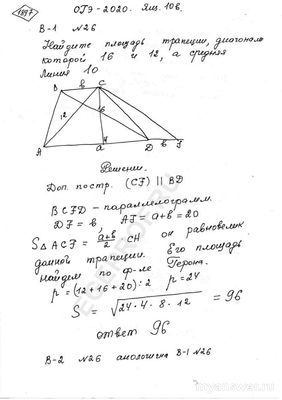 1897
ОГЭ-2020. Ящ. 106.
В-1 №26
Найдите площадь трапеции, диагонали
которой 16 и 12, а средняя
линия 10
B b C
12 16
A a H D b F
Решение.
Доп. постр. (CF) || BD
BCFD - параллелограмм.
DF = b, AF = a+b = 20
S△ACF = a+b/2 · CH он равновелик
данной трапеции. Его площадь
найдем по ф-ле Герона.
p = (12+16+20):2 p = 24
S = √24·4·8·12 = 96
ответ 96
В-2 №26 аналогична В-1 №26
myanswer.ru